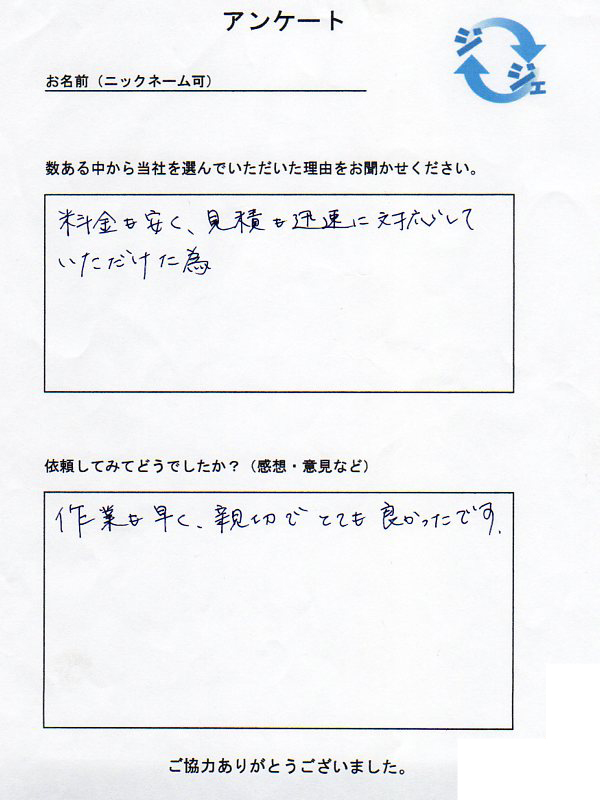 アンケート
ジジェ
お名前（ニックネーム可）
数ある中から当社を選んでいただいた理由をお聞かせください。
料金も安く、見積も迅速に対応して
いただけた為
依頼してみてどうでしたか？（感想・意見など）
作業も早く、親切でとても良かったです。
ご協力ありがとうございました。